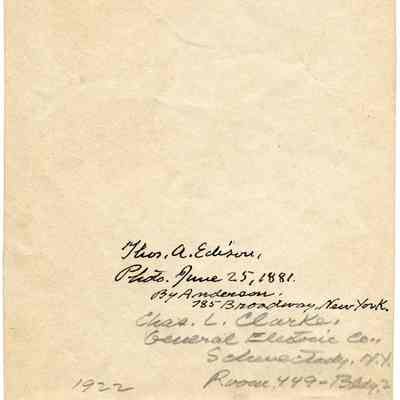 Thos. A. Edison,
Photo. June 25, 1881.
By Anderson.
785 Broadway, New York.
Chas. L. Clarke,
General Electric Co.,
Schenectady, N.Y.
Room 449-Bldg. 2
1922